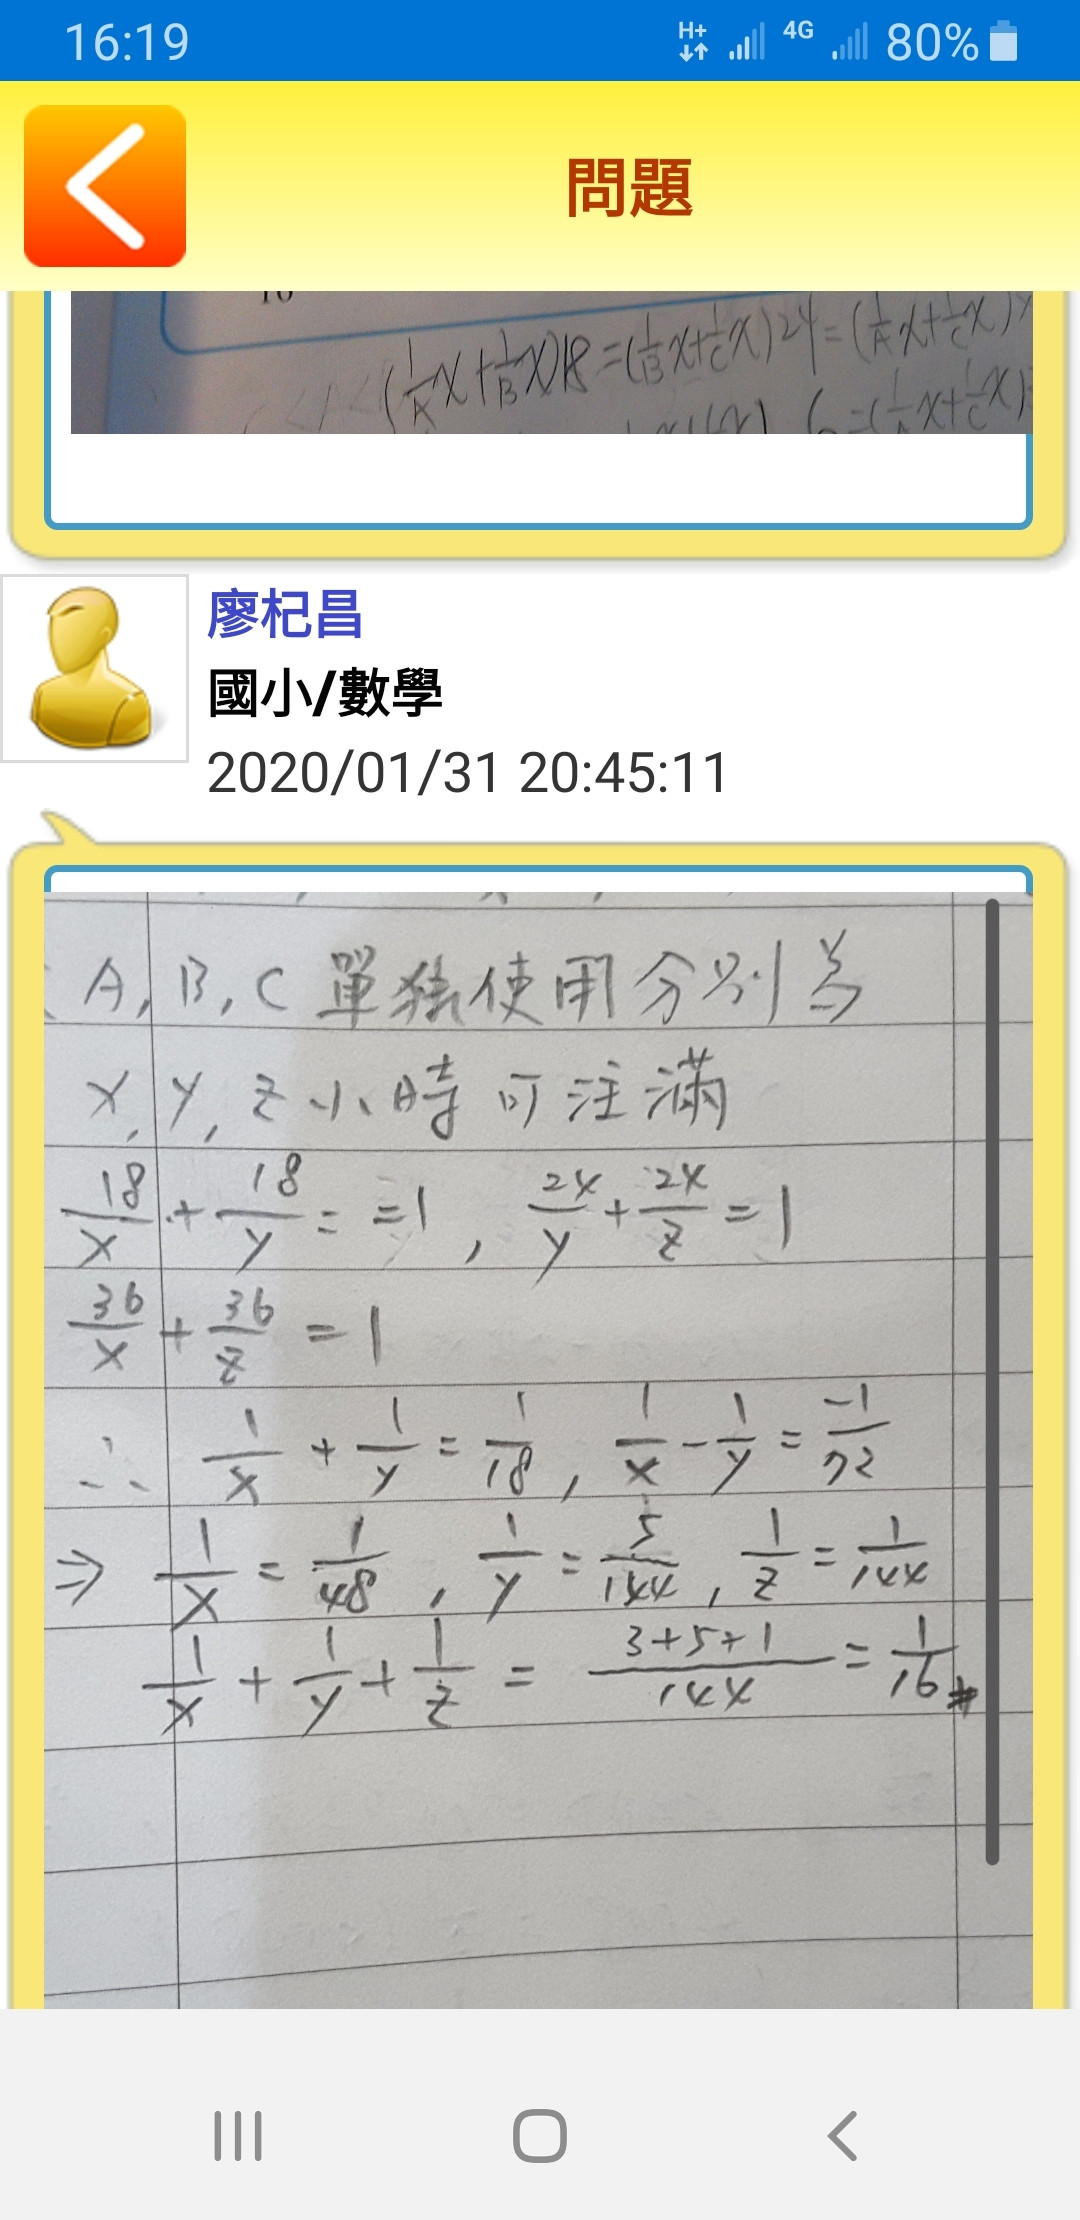 16:19 H+ 4G 80%
問題
(1/A x + 1/B x)18 = (1/B x + 1/C x)24 = (1/A x + 1/C x)
廖杞昌
國小/數學
2020/01/31 20:45:11
A, B, C 單獨使用分別為
X, Y, Z 小時可注滿
18/X + 18/Y = =1 , 24/Y + 24/Z = 1
36/X + 36/Z = 1
∴ 1/X + 1/Y = 1/18 , 1/X - 1/Y = -1/72
⇒ 1/X = 1/48 , 1/Y = 5/144 , 1/Z = 1/144
1/X + 1/Y + 1/Z = 3+5+1/144 = 1/16 #